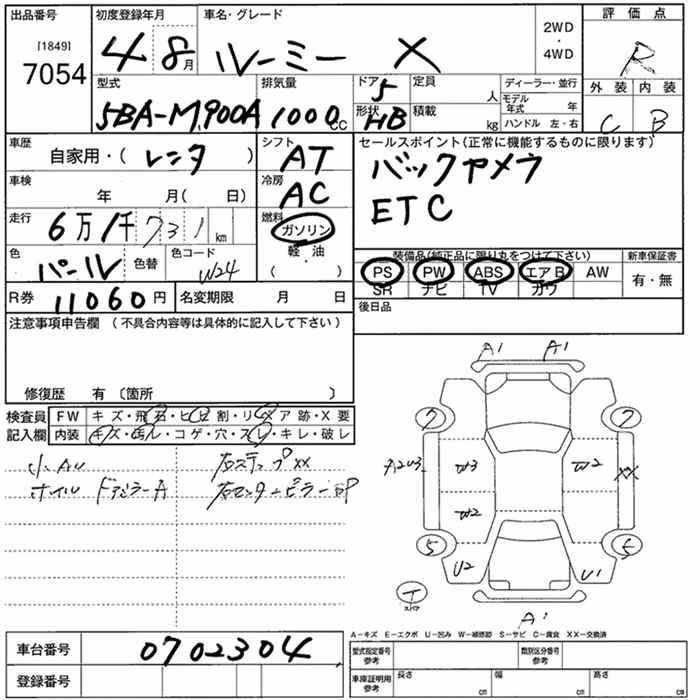 出品番号 初度登録年月 車名・グレード 2WD・4WD 評価点
[1849]
7054 4 8月 ルーミー X R
型式 排気量 ドア 5 定員 人 ディーラー・並行 外装 内装
5BA-M900A 1000cc 形状 HB 積載 kg モデル年式 年 C B
ハンドル 左・右
車歴 自家用・(レンタ) シフト AT セールスポイント(正常に機能するものに限ります)
車検 年 月( 日) 冷房 AC バックカメラ
走行 6万1千731km 燃料 ガソリン ETC
軽・油
( )
色 パール 色替 色コード W24 装備品(純正品に限り丸をつけて下さい) 新車保証書
PS PW ABS エアB AW 有・無
SR ナビ TV カワ
R券 11060円 名変期限 月 日 後日品
注意事項申告欄 (不具合内容等は具体的に記入して下さい)
修復歴 有 〔箇所 〕
検査員 FW キズ・飛石・ヒビ割・リペア跡・X要
記入欄 内装 キズ・汚レ・コゲ・穴・スレ・キレ・破レ
小AU 右ステップXX
ホイル ドアミラーA 右センターピラー
A1 A1
7 7
A2U3 W3 W2 XX
W2
5 5
U2 U1
T
スペア
A1
A-キズ E-エクボ U-凹み W-補修跡 S-サビ C-腐食 XX-交換済
車台番号 0702304
登録番号
型式指定番号 参考 類別区分番号 参考
車庫証明用 参考 長さ cm 幅 cm 高さ cm